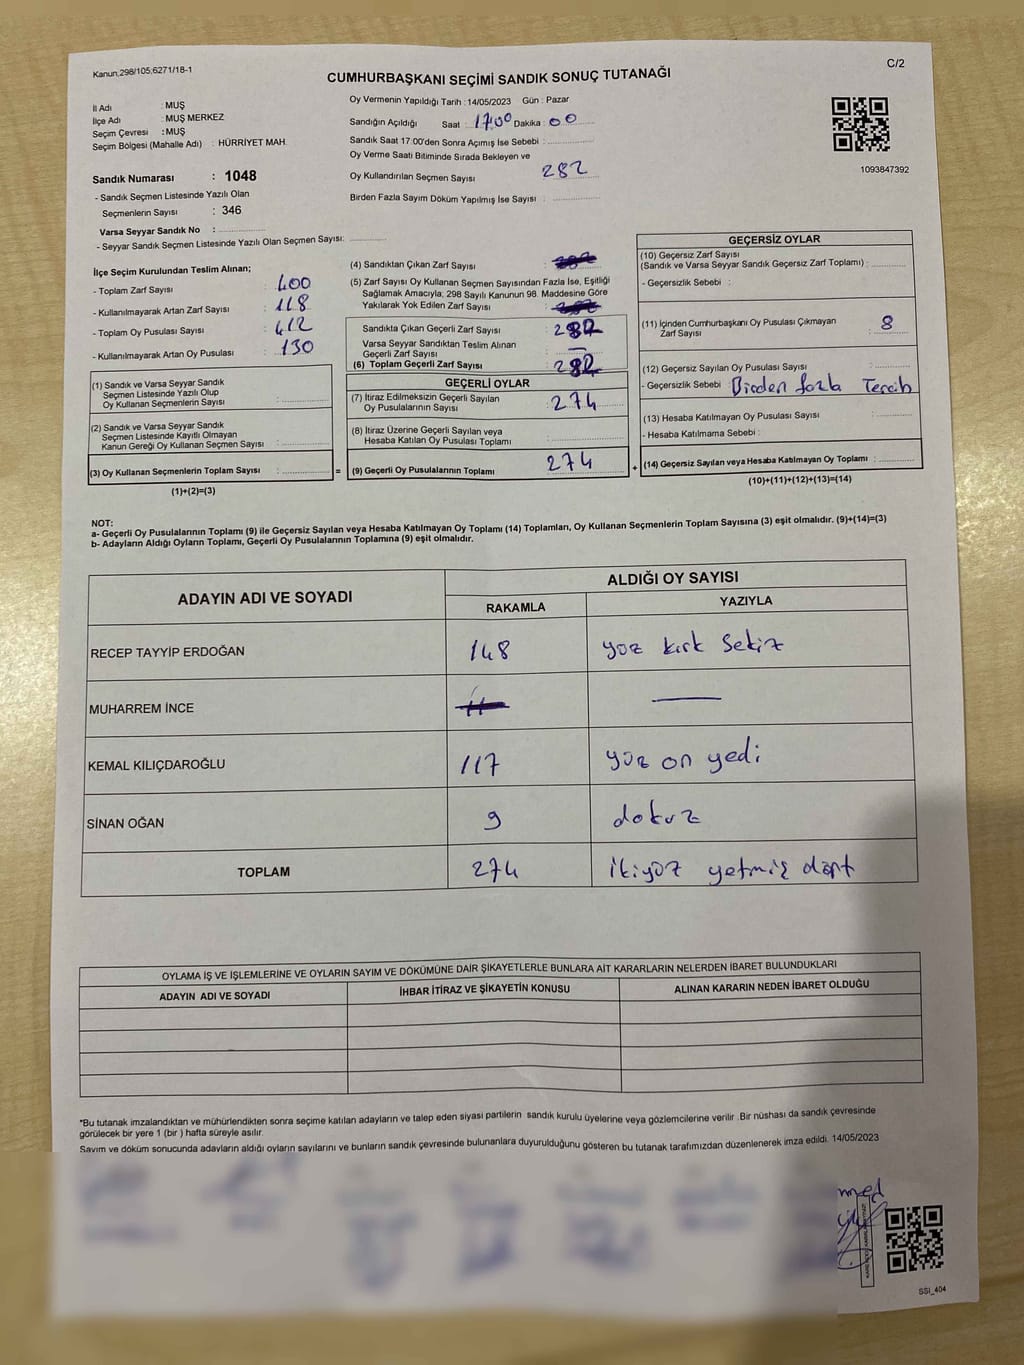 Kanun;298/105;6271/18-1
C/2
CUMHURBAŞKANI SEÇİMİ SANDIK SONUÇ TUTANAĞI
İl Adı : MUŞ
İlçe Adı : MUŞ MERKEZ
Seçim Çevresi : MUŞ
Seçim Bölgesi (Mahalle Adı) : HÜRRİYET MAH.
Sandık Numarası : 1048
- Sandık Seçmen Listesinde Yazılı Olan
Seçmenlerin Sayısı : 346
Varsa Seyyar Sandık No :
- Seyyar Sandık Seçmen Listesinde Yazılı Olan Seçmen Sayısı:
Oy Vermenin Yapıldığı Tarih : 14/05/2023 Gün : Pazar
Sandığın Açıldığı Saat : 17:00 Dakika : 00
Sandık Saat 17.00'den Sonra Açımış İse Sebebi :
Oy Verme Saati Bitiminde Sırada Bekleyen ve
Oy Kullandırılan Seçmen Sayısı 282
Birden Fazla Sayım Döküm Yapılmış İse Sayısı :
1093847392
İlçe Seçim Kurulundan Teslim Alınan;
- Toplam Zarf Sayısı : 400
- Kullanılmayarak Artan Zarf Sayısı : 118
- Toplam Oy Pusulası Sayısı : 412
- Kullanılmayarak Artan Oy Pusulası : 130
(1) Sandık ve Varsa Seyyar Sandık
Seçmen Listesinde Yazılı Olup
Oy Kullanan Seçmenlerin Sayısı :
(2) Sandık ve Varsa Seyyar Sandık
Seçmen Listesinde Kayıtlı Olmayan
Kanun Gereği Oy Kullanan Seçmen Sayısı :
(3) Oy Kullanan Seçmenlerin Toplam Sayısı : =
(1)+(2)=(3)
(4) Sandıktan Çıkan Zarf Sayısı :
(5) Zarf Sayısı Oy Kullanan Seçmen Sayısından Fazla İse, Eşitliği
Sağlamak Amacıyla; 298 Sayılı Kanunun 98. Maddesine Göre
Yakılarak Yok Edilen Zarf Sayısı :
Sandıkta Çıkan Geçerli Zarf Sayısı : 282
Varsa Seyyar Sandıktan Teslim Alınan
Geçerli Zarf Sayısı : —
(6) Toplam Geçerli Zarf Sayısı : 282
GEÇERLİ OYLAR
(7) İtiraz Edilmeksizin Geçerli Sayılan
Oy Pusulalarının Sayısı : 274
(8) İtiraz Üzerine Geçerli Sayılan veya
Hesaba Katılan Oy Pusulası Toplamı :
(9) Geçerli Oy Pusulalarının Toplamı : 274 +
GEÇERSİZ OYLAR
(10) Geçersiz Zarf Sayısı
(Sandık ve Varsa Seyyar Sandık Geçersiz Zarf Toplamı) :
- Geçersizlik Sebebi :
(11) İçinden Cumhurbaşkanı Oy Pusulası Çıkmayan
Zarf Sayısı : 8
(12) Geçersiz Sayılan Oy Pusulası Sayısı :
- Geçersizlik Sebebi Birden fazla Tercih
(13) Hesaba Katılmayan Oy Pusulası Sayısı :
- Hesaba Katılmama Sebebi :
(14) Geçersiz Sayılan veya Hesaba Katılmayan Oy Toplamı :
(10)+(11)+(12)+(13)=(14)
NOT:
a- Geçerli Oy Pusulalarının Toplamı (9) ile Geçersiz Sayılan veya Hesaba Katılmayan Oy Toplamı (14) Toplamları, Oy Kullanan Seçmenlerin Toplam Sayısına (3) eşit olmalıdır. (9)+(14)=(3)
b- Adayların Aldığı Oyların Toplamı, Geçerli Oy Pusulalarının Toplamına (9) eşit olmalıdır.
ADAYIN ADI VE SOYADI ALDIĞI OY SAYISI
RAKAMLA YAZIYLA
RECEP TAYYİP ERDOĞAN 148 yüz kırk sekiz
MUHARREM İNCE —
KEMAL KILIÇDAROĞLU 117 yüz on yedi
SİNAN OĞAN 9 dokuz
TOPLAM 274 ikiyüz yetmiş dört
OYLAMA İŞ VE İŞLEMLERİNE VE OYLARIN SAYIM VE DÖKÜMÜNE DAİR ŞİKAYETLERLE BUNLARA AİT KARARLARIN NELERDEN İBARET BULUNDUKLARI
ADAYIN ADI VE SOYADI İHBAR İTİRAZ VE ŞİKAYETİN KONUSU ALINAN KARARIN NEDEN İBARET OLDUĞU
*Bu tutanak imzalandıktan ve mühürlendikten sonra seçime katılan adayların ve talep eden siyasi partilerin sandık kurulu üyelerine veya gözlemcilerine verilir .Bir nüshası da sandık çevresinde
görülecek bir yere 1 (bir ) hafta süreyle asılır.
Sayım ve döküm sonucunda adayların aldığı oyların sayılarını ve bunların sandık çevresinde bulunanlara duyurulduğunu gösteren bu tutanak tarafımızdan düzenlenerek imza edildi. 14/05/2023
SSI_404